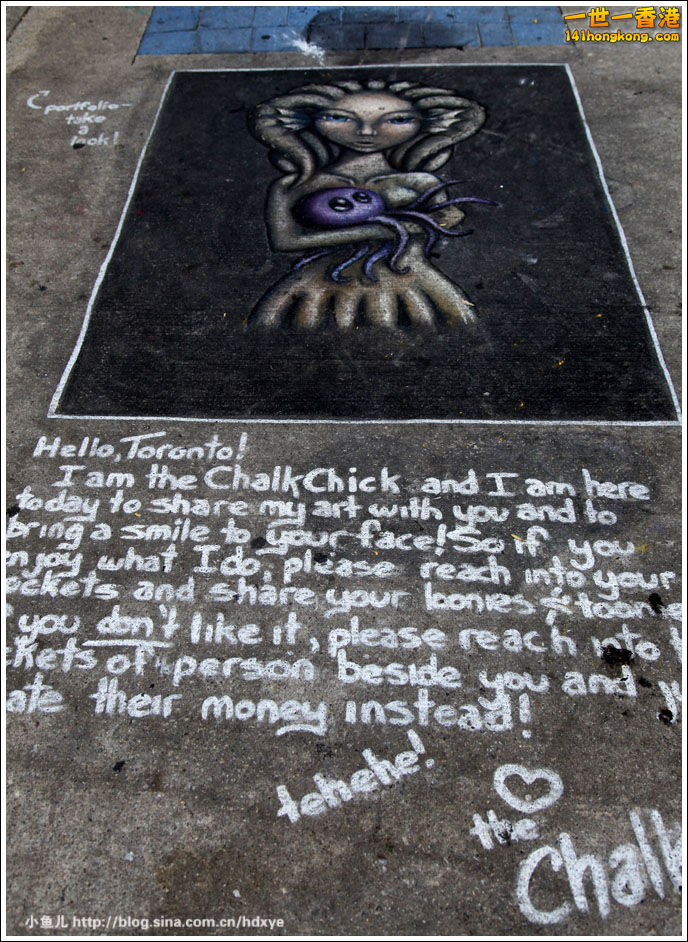 一世一香港
141hongkong.com
portfolio-
take
a
look!
Hello, Toronto!
I am the ChalkChick and I am here
today to share my art with you and to
bring a smile to your face! So if you
njoy what I do, please reach into your
ockets and share your loonies & toonie
you don't like it, please reach into
ckets of person beside you and
ate their money instead!
tehehe!
the
Chalk
小鱼儿 http://blog.sina.com.cn/hdxye